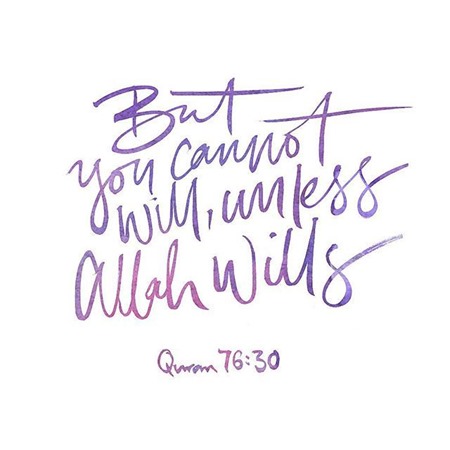 But
you cannot
will, unless
Allah Wills
Quran 76:30